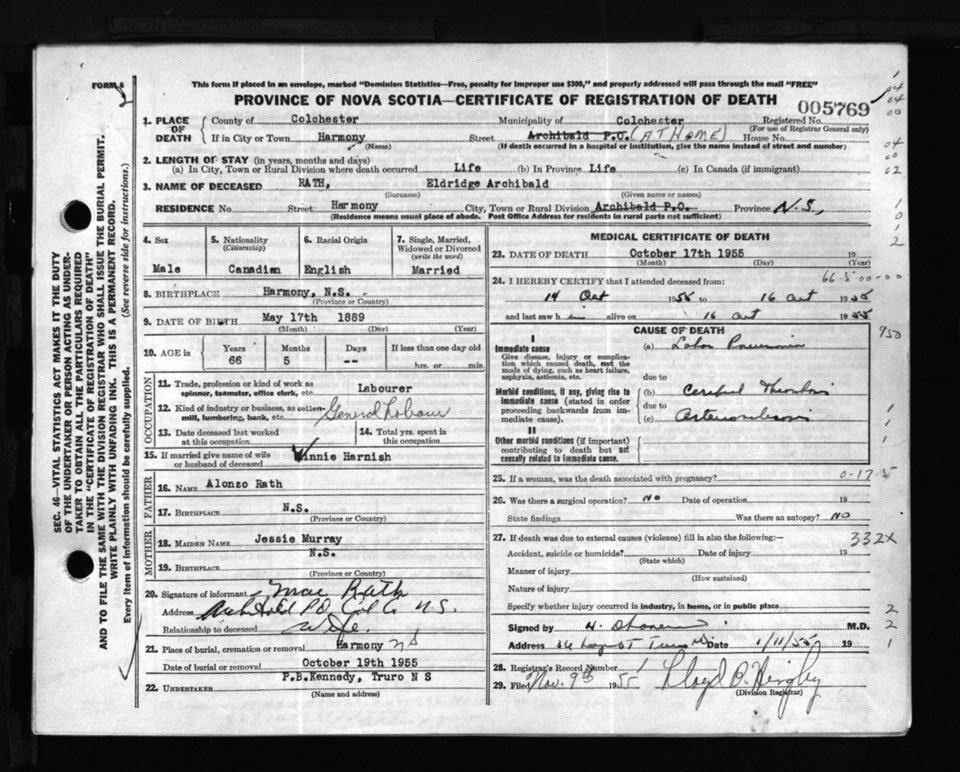 This form if placed in an envelope, marked "Dominion Statistics—Free, penalty for improper use $300," and properly addressed will pass through the mail "FREE"
FORM 6
2
PROVINCE OF NOVA SCOTIA—CERTIFICATE OF REGISTRATION OF DEATH
005769
1. PLACE OF DEATH
County of Colchester Municipality of Colchester Registered No.
(For use of Registrar General only)
If in City or Town Harmony Street Archibald P.O. (AT HOME) House No.
(Name) (If death occurred in a hospital or institution, give the name instead of street and number)
2. LENGTH OF STAY (in years, months and days)
(a) In City, Town or Rural Division where death occurred Life (b) In Province Life (c) In Canada (if immigrant)
3. NAME OF DECEASED RATH, Eldridge Archibald
(Surname) (Given name or names)
RESIDENCE No. Street Harmony City, Town or Rural Division Archibald P.O. Province N.S.,
(Residence means usual place of abode. Post Office Address for residents in rural parts not sufficient)
4. Sex
Male
5. Nationality
(Citizenship)
Canadian
6. Racial Origin
English
7. Single, Married, Widowed or Divorced
(write the word)
Married
8. BIRTHPLACE Harmony, N.S.
(Province or Country)
9. DATE OF BIRTH May 17th 1889
(Month) (Day) (Year)
10. AGE in
Years Months Days If less than one day old
66 5 -- hrs. or min.
OCCUPATION
11. Trade, profession or kind of work as spinner, teamster, office clerk, etc. Labourer
12. Kind of industry or business, as cotton mill, lumbering, bank, etc. General Labour
13. Date deceased last worked at this occupation
14. Total yrs. spent in this occupation
15. If married give name of wife or husband of deceased Winnie Harnish
FATHER
16. NAME Alonzo Rath
17. BIRTHPLACE N.S.
(Province or Country)
MOTHER
18. MAIDEN NAME Jessie Murray
19. BIRTHPLACE N.S.
(Province or Country)
20. Signature of informant Mrs Rath
Address Archibald P.O. Col Co N.S.
Relationship to deceased Wife.
21. Place of burial, cremation or removal Harmony N S
Date of burial or removal October 19th 1955
22. UNDERTAKER P.B.Kennedy, Truro N S
(Name and address)
MEDICAL CERTIFICATE OF DEATH
23. DATE OF DEATH October 17th 1955 19
(Month) (Day) (Year)
66-5-00-00
24. I HEREBY CERTIFY that I attended deceased from:
14 Oct 1955 to 16 Oct 1955
and last saw h im alive on 16 Oct 1955
CAUSE OF DEATH
950
I
Immediate cause
Give disease, injury or complication which caused death, not the mode of dying, such as heart failure, asphyxia, asthenia, etc.
(a) Lobar Pneumonia
due to
Morbid conditions, if any, giving rise to immediate cause (stated in order proceeding backwards from immediate cause).
(b) Cerebral Thrombosis
due to
(c) Arteriosclerosis
II
Other morbid conditions (if important) contributing to death but not causally related to immediate cause.
25. If a woman, was the death associated with pregnancy?
0-17-5
26. Was there a surgical operation? NO Date of operation 19
State findings Was there an autopsy? NO
27. If death was due to external causes (violence) fill in also the following:—
332X
Accident, suicide or homicide? Date of injury 19
(State which)
Manner of injury
(How sustained)
Nature of injury
Specify whether injury occurred in industry, in home, or in public place
Signed by H. M.D.
Address Truro Date 1/11/55 19
28. Registrar's Record Number 1
29. Filed Nov. 9th 1955 Lloyd
(Division Registrar)
SEC. 46—VITAL STATISTICS ACT MAKES IT THE DUTY
OF THE UNDERTAKER OR PERSON ACTING AS UNDER-
TAKER TO OBTAIN ALL THE PARTICULARS REQUIRED
IN THE "CERTIFICATE OF REGISTRATION OF DEATH"
AND TO FILE THE SAME WITH THE DIVISION REGISTRAR WHO SHALL ISSUE THE BURIAL PERMIT.
WRITE PLAINLY WITH UNFADING INK. THIS IS A PERMANENT RECORD.
Every item of information should be carefully supplied. (See reverse side for instructions.)